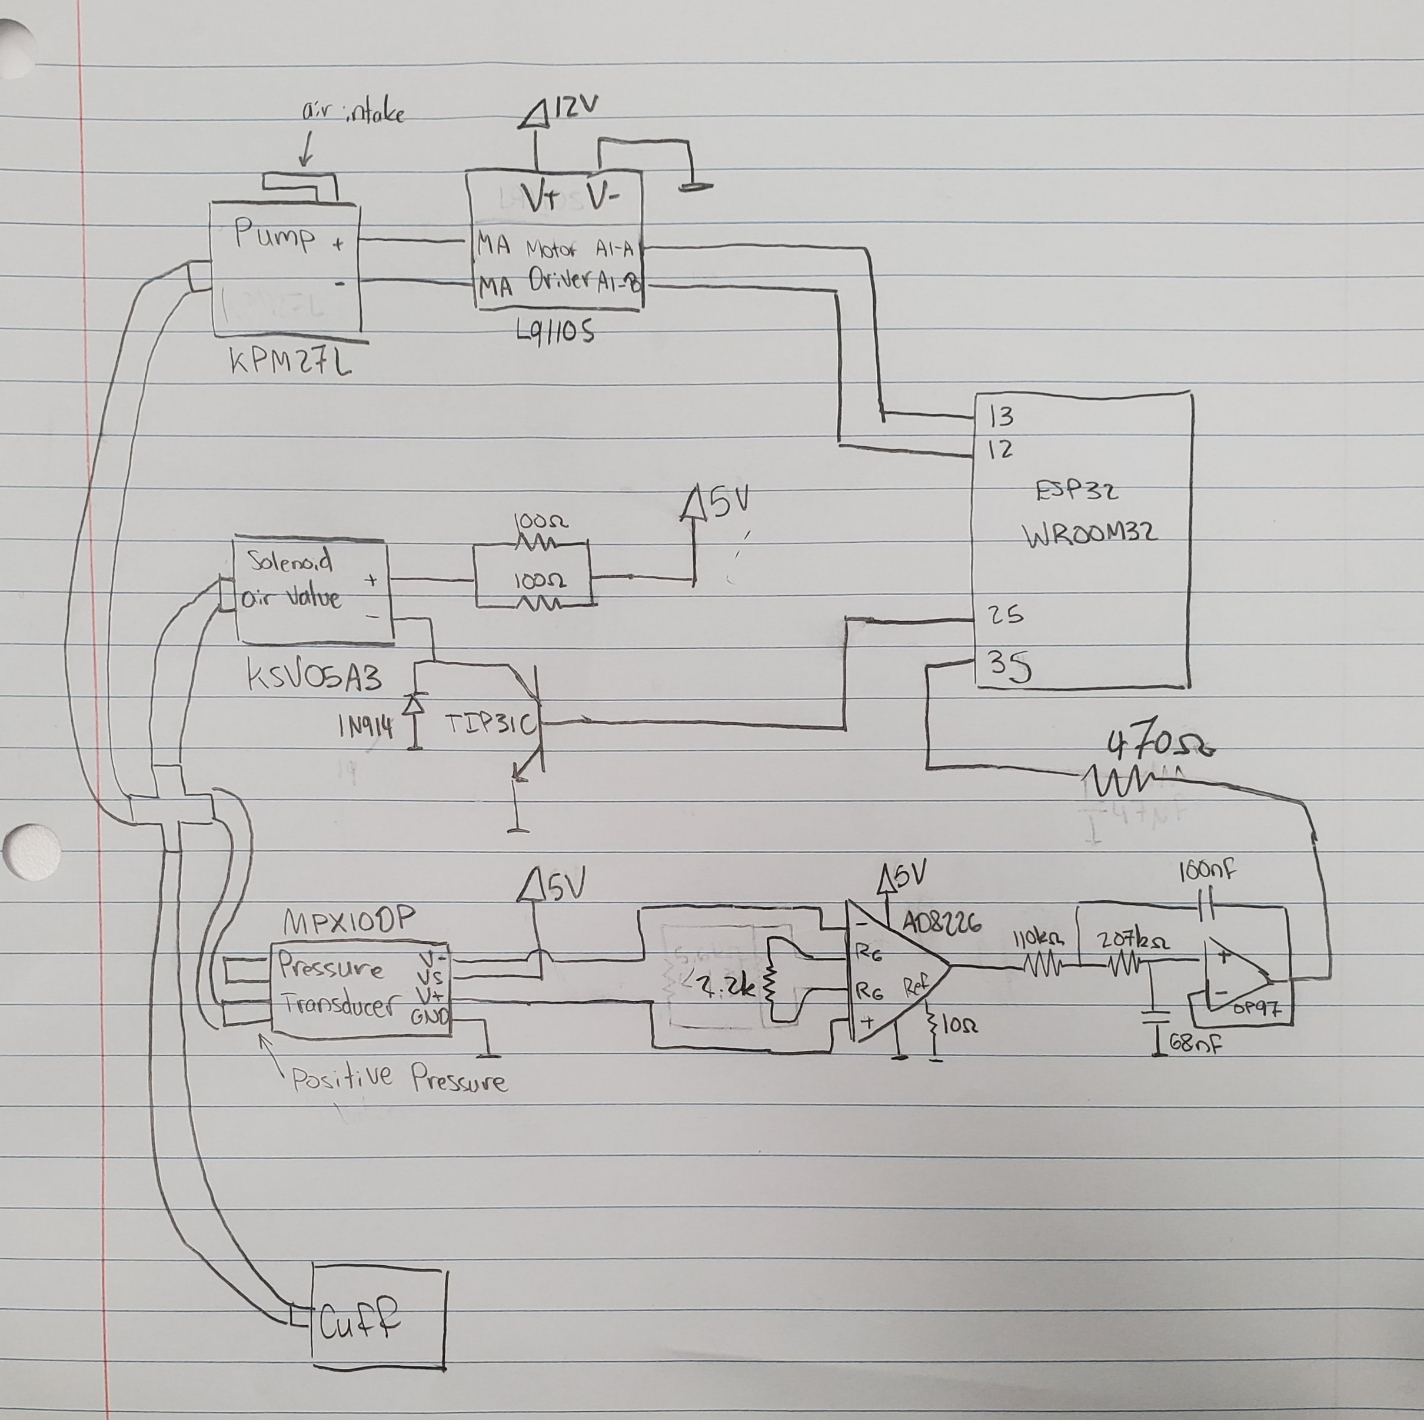 air intake
12V
V+ V-
Pump +
-
MA Motor A1-A
MA Driver A1-B
L9110S
KPM27L
13
12
ESP32
WROOM32
25
35
5V
100Ω
100Ω
Solenoid
air valve
+
-
KSV05A3
1N914
TIP31C
470Ω
5V
MPX10DP
Pressure
Transducer
V-
Vs
V+
GND
Positive Pressure
5V
AD8226
-
RG
RG
+
Ref
2.2k
10Ω
110kΩ
207kΩ
100nF
68nF
+
-
OP97
Cuff